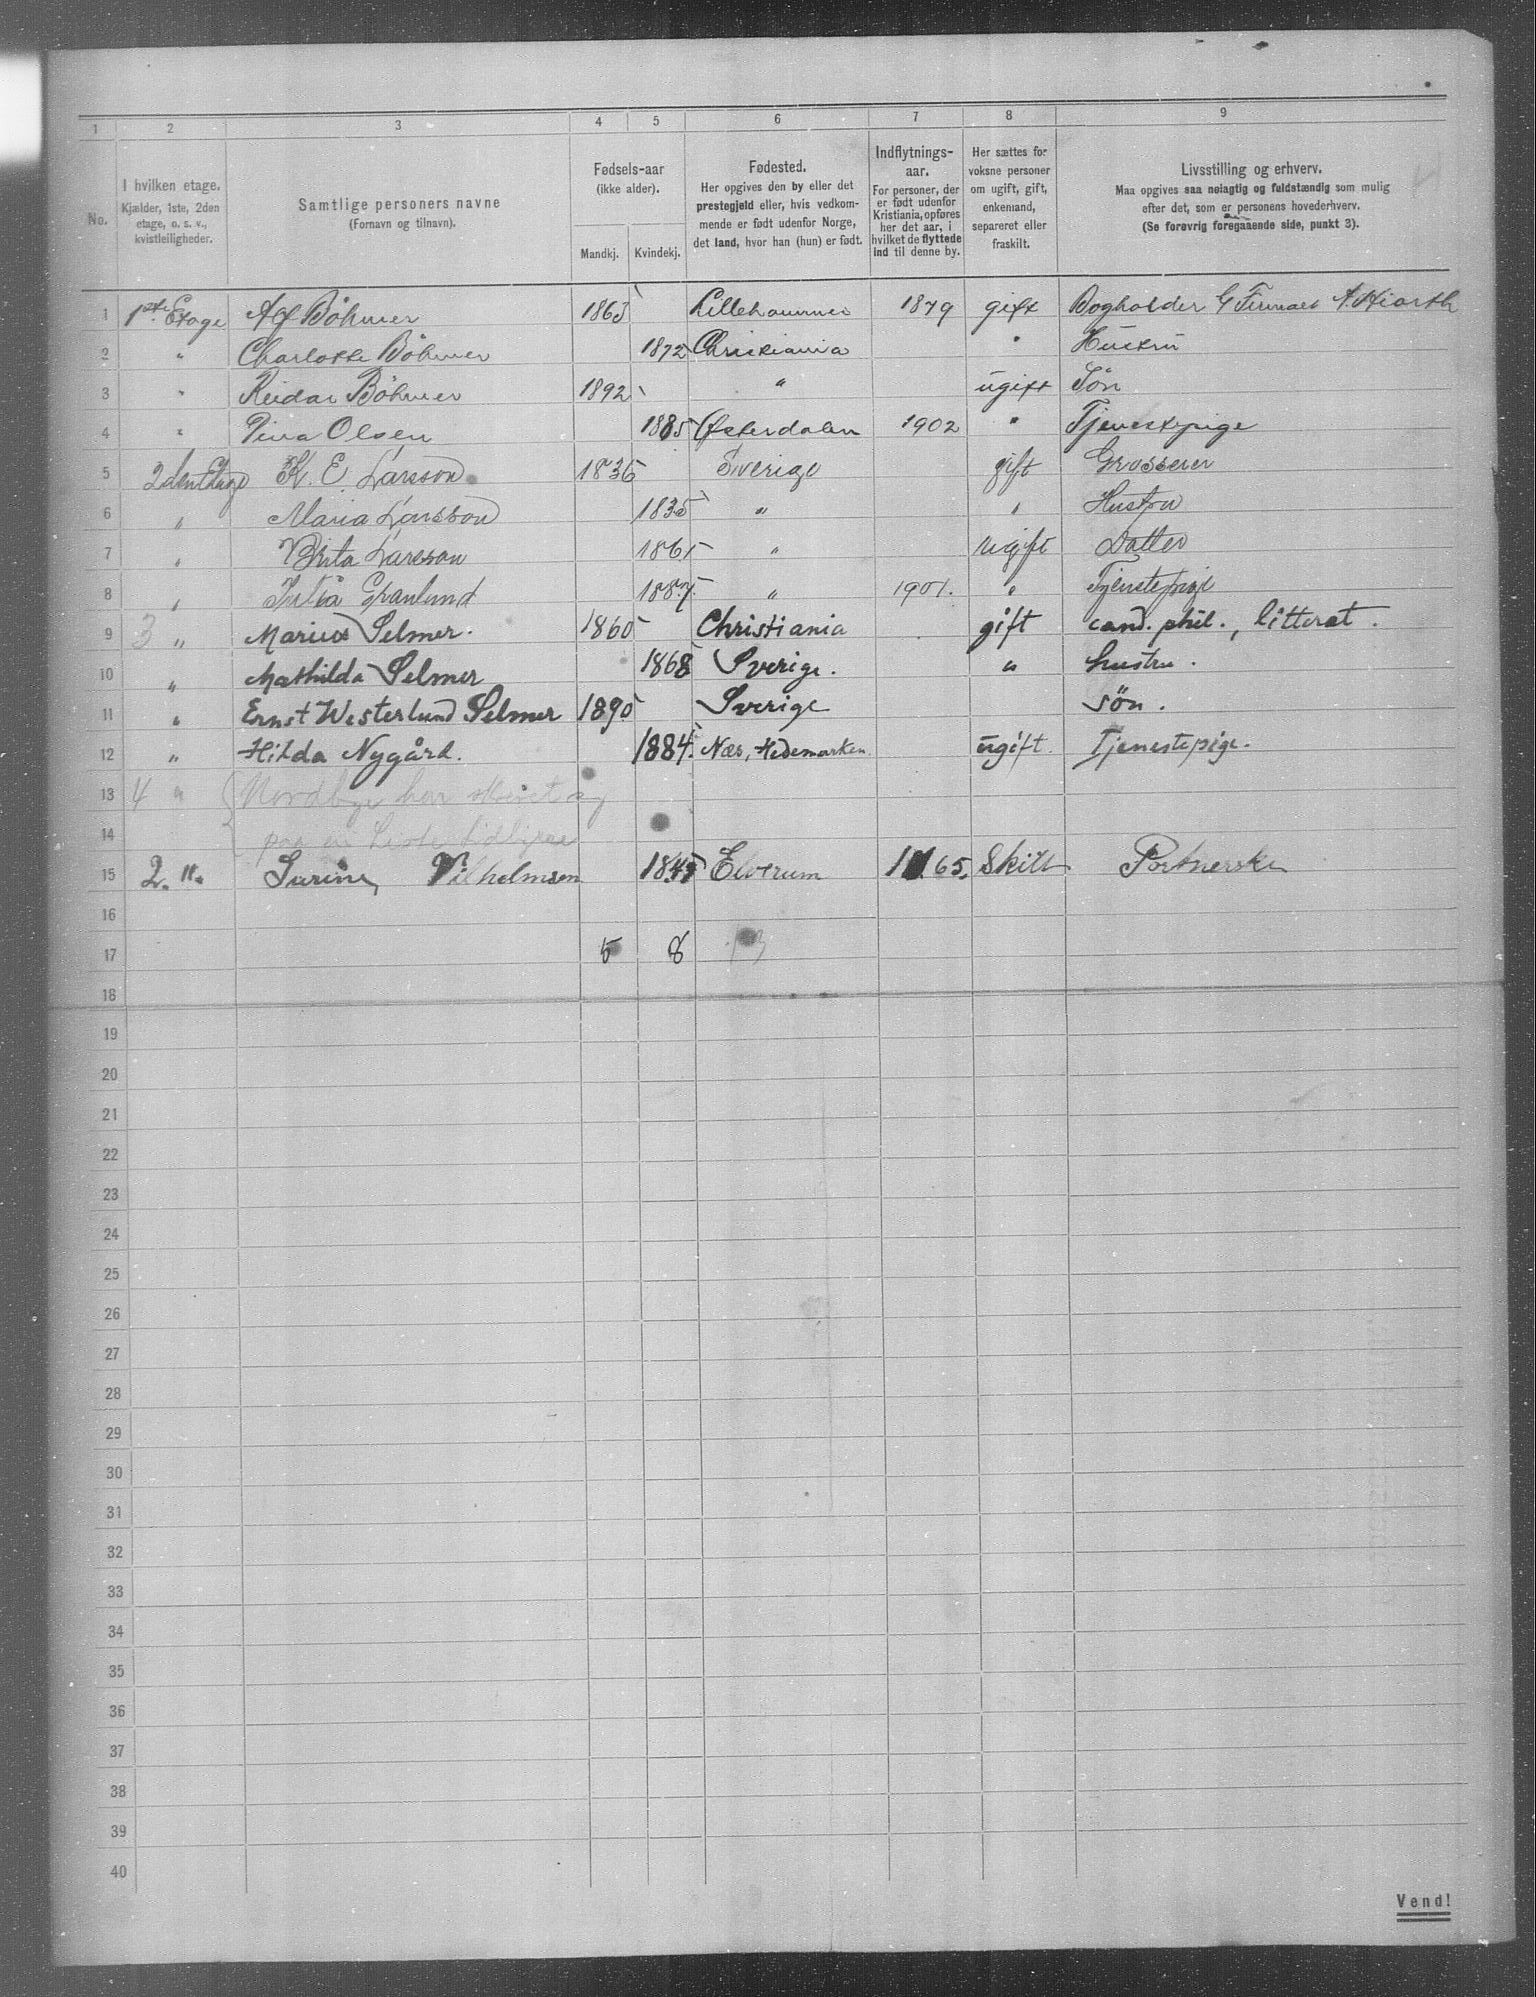 1 2 3 4 5 6 7 8 9
No.
I hvilken etage.
Kjælder, 1ste, 2den
etage, o. s. v.,
kvistleiligheder.
Samtlige personers navne
(Fornavn og tilnavn).
Fødsels-aar
(ikke alder).
Mandkj. Kvindekj.
Fødested.
Her opgives den by eller det
prestegjeld eller, hvis vedkom-
mende er født udenfor Norge,
det land, hvor han (hun) er født.
Indflytnings-
aar.
For personer, der
er født udenfor
Kristiania, opføres
her det aar, i
hvilket de flyttede
ind til denne by.
Her sættes for
voksne personer
om ugift, gift,
enkemand,
separeret eller
fraskilt.
Livsstilling og erhverv.
Maa opgives saa nøiagtig og fuldstændig som mulig
efter det, som er personens hovederhverv.
(Se forøvrig foregaaende side, punkt 3).
1 1ste Etage Alf Böhmer 1863 Lillehammer 1879 gift Bogholder Firmaet A. Hiorth
2 " Charlotte Böhmer 1872 Christiania " Hustru
3 " Reidar Böhmer 1892 " ugift Søn
4 " Olsen 1885 Østerdalen 1902 " Tjenestepige
5 2den Etage K. E. Larsson 1836 Sverige gift Grosserer
6 " Maria Larsson 1835 " " Hustru
7 " Brita Larsson 1861 " ugift Datter
8 " Julia Granlund 1887 " 1901. " Tjenestepige
9 3 " Marius Selmer. 1860 Christiania gift cand. phil., litterat.
10 " Mathilda Selmer 1868 Sverige. " hustru.
11 " Ernst Westerlund Selmer 1890 Sverige søn.
12 " Hilda Nygård. 1884. Næs, Hedemarken. ugift. Tjenestepige.
13 4 " Nordbye har
14 paa en Liste
15 2. ". Surine, Vilhelmsen 1845 Elverum 1865. Skilt Portnerske
16
17 5 8 13
18
19
20
21
22
23
24
25
26
27
28
29
30
31
32
33
34
35
36
37
38
39
40
Vend!